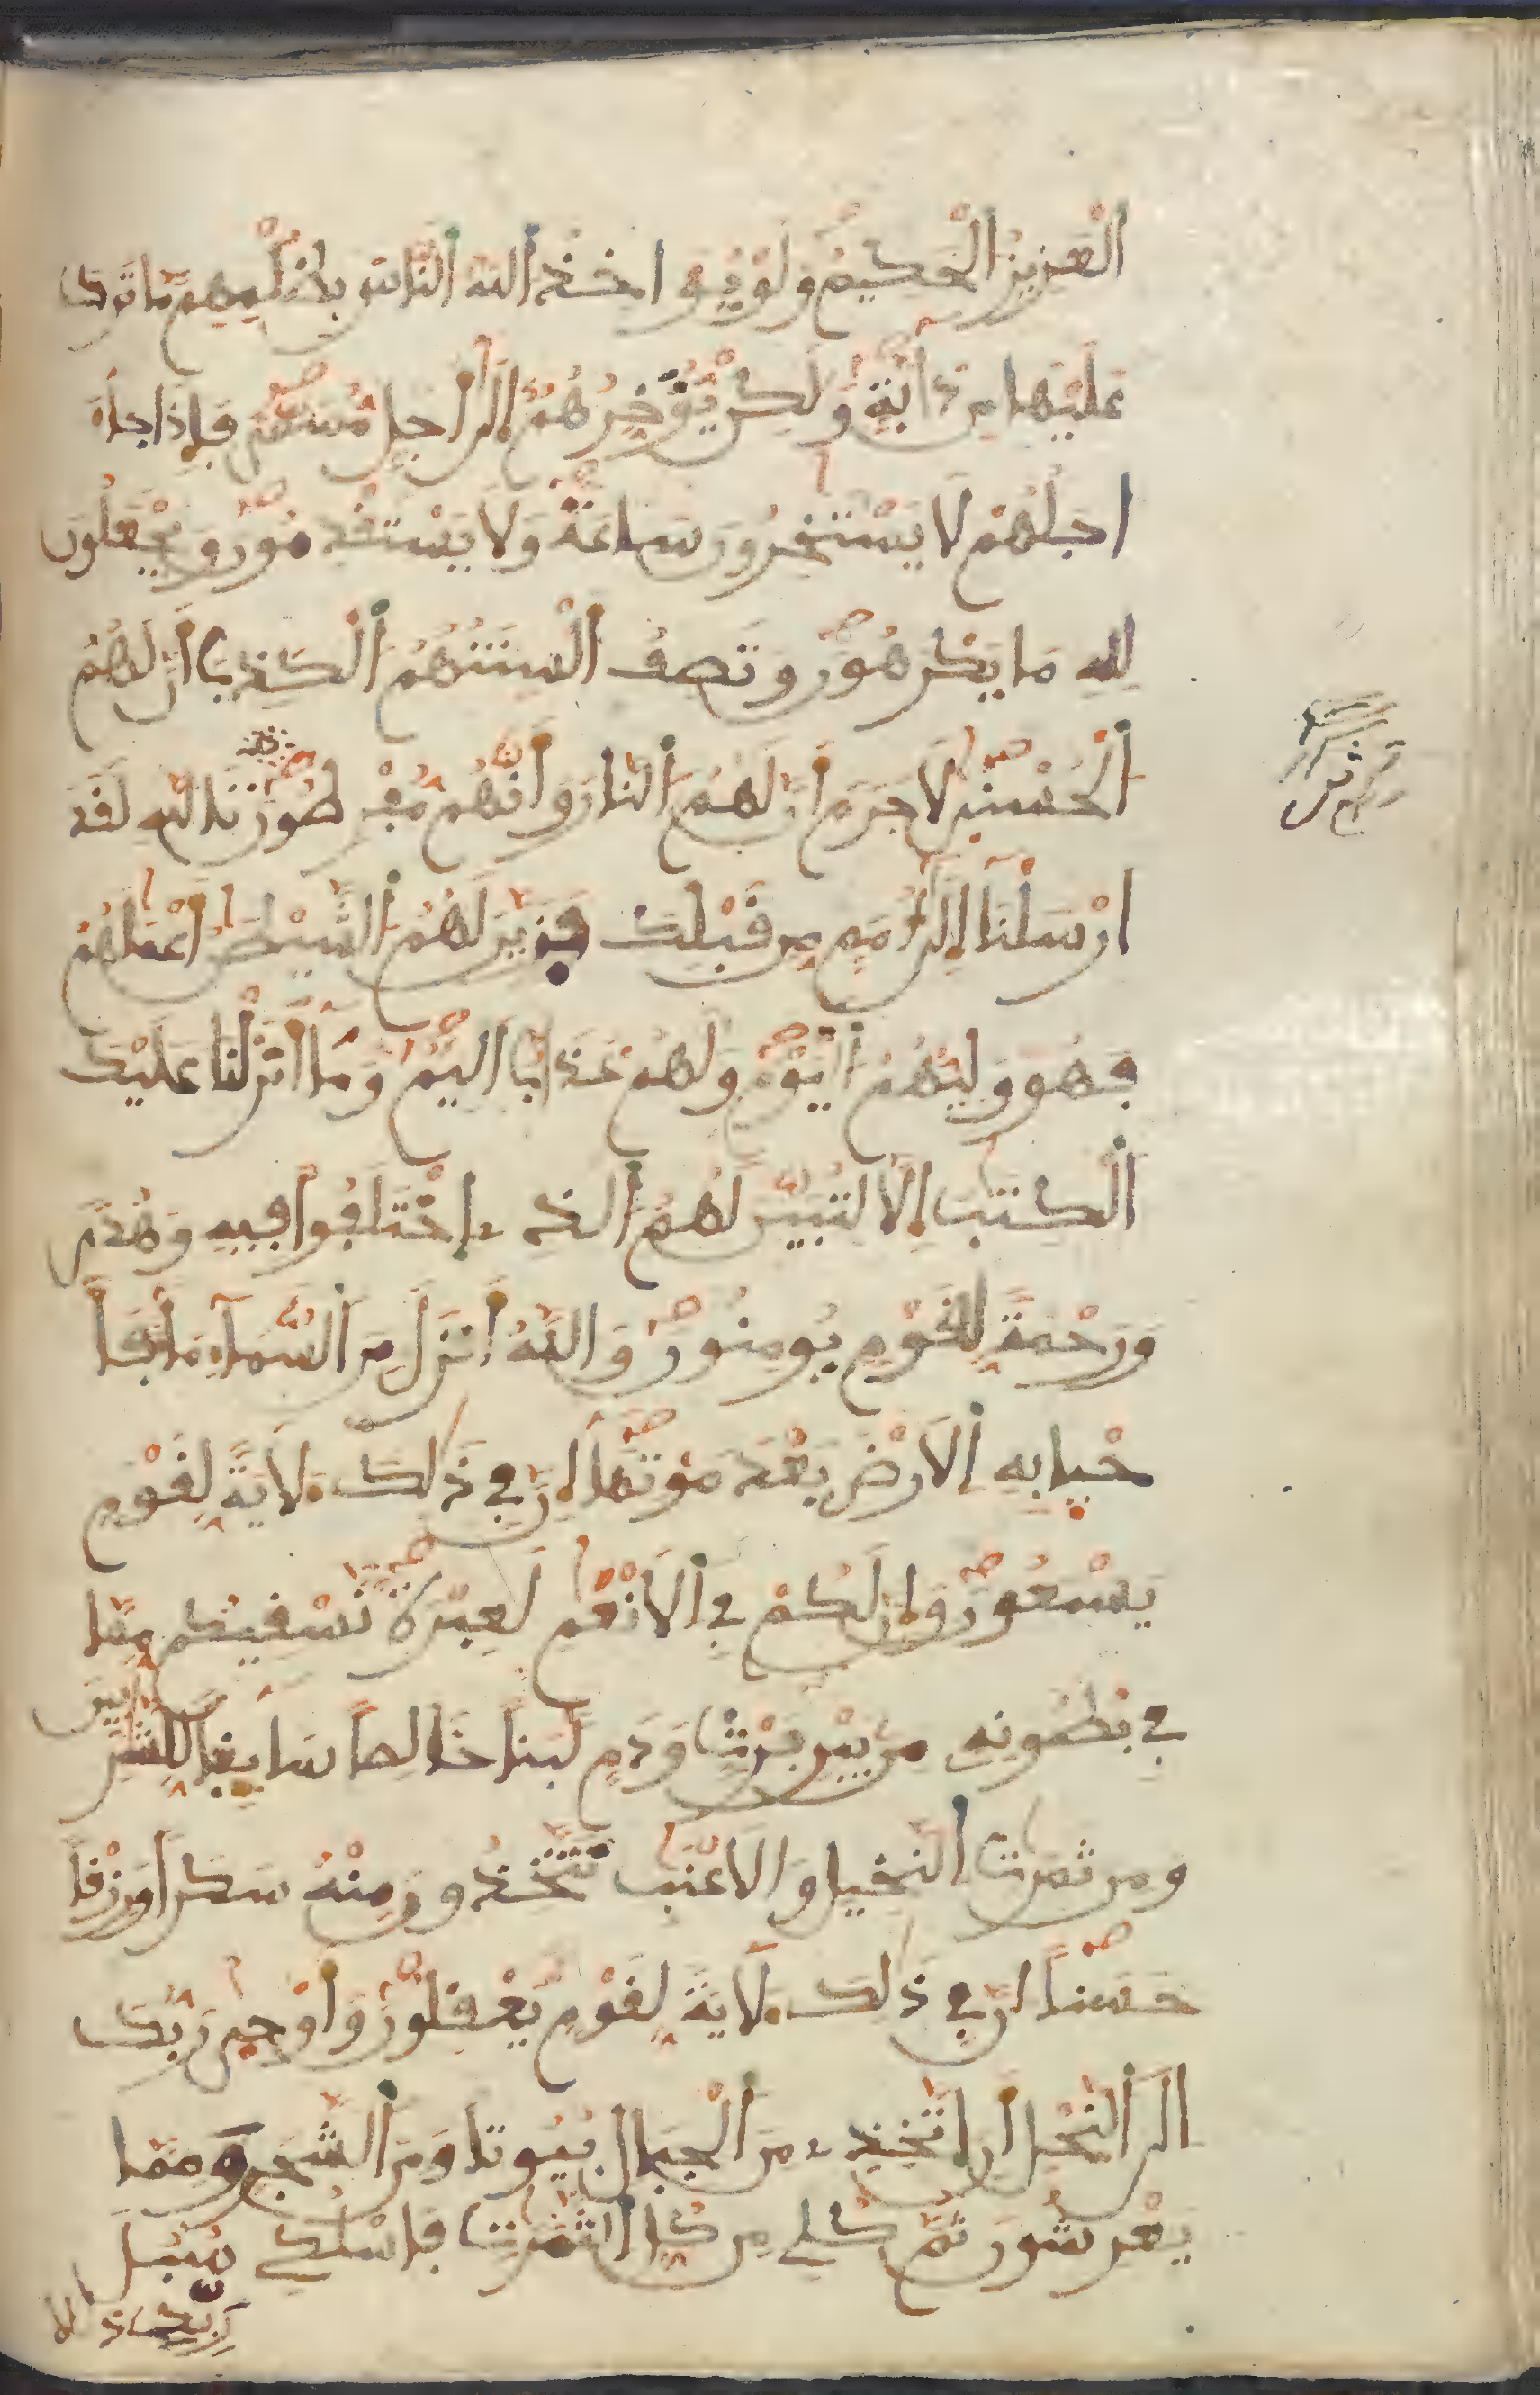 الْعَزِيزُ الْحَكِيمُ وَلَوْ يُوَاخِذُ اللهُ النَّاسَ بِظُلْمِهِم مَّا تَرَكَ
عَلَيْهَا مِن دَآبَّةٍ وَلَكِنْ يُّوَخِّرُهُمُ إِلَى أَجَلٍ مُّسَمًّى فَإِذَا جَآءَ
اجَلُهُمْ لَا يَسْتَخِرُونَ سَاعَةً وَلَا يَسْتَقْدِمُونَ وَيَجْعَلُونَ
لِلهِ مَا يَكْرَهُونَ وَتَصِفُ أَلْسِنَتُهُمُ الْكَذِبَ أَنَّ لَهُمُ
الْحُسْنَى لَا جَرَمَ أَنَّ لَهُمُ النَّارَ وَأَنَّهُم مُّفْرِطُونَ تَاللهِ لَقَدَ
ارْسَلْنَا إِلَى أُمَمٍ مِّن قَبْلِكَ فَزَيَّنَ لَهُمُ الشَّيْطَنُ أَعْمَلَهُمْ
فَهُوَ وَلِيُّهُمُ الْيَوْمَ وَلَهُمْ عَذَابٌ اَلِيمٌ وَمَا أَنزَلْنَا عَلَيْكَ
الْكِتَبَ إِلَّا لِتُبَيِّنَ لَهُمُ الَّذِي اخْتَلَفُوا فِيهِ وَهُدًى
وَرَحْمَةً لِّقَوْمٍ يُومِنُونَ وَاللهُ أَنزَلَ مِنَ السَّمَآءِ مَآءً فَأَ
حْيَا بِهِ الْأَرْضَ بَعْدَ مَوْتِهَا إِنَّ فِي ذَلِكَ لَآيَةً لِّقَوْمٍ
يَسْمَعُونَ وَإِنَّ لَكُمْ فِي الْأَنْعَمِ لَعِبْرَةً نَّسْقِيكُم مِّمَّا
فِي بُطُونِهِ مِنْ بَيْنِ فَرْثٍ وَدَمٍ لَّبَنًا خَالِصًا سَآئِغًا لِّلشَّرِبِينَ
وَمِن ثَمَرَتِ النَّخِيلِ وَالْأَعْنَبِ تَتَّخِذُونَ مِنْهُ سَكَرًا وَرِزْقًا
حَسَنًا إِنَّ فِي ذَلِكَ لَآيَةً لِّقَوْمٍ يَعْقِلُونَ وَأَوْحَى رَبُّكَ
إِلَى النَّحْلِ أَنِ اتَّخِذِي مِنَ الْجِبَالِ بُيُوتًا وَمِنَ الشَّجَرِ وَمِمَّا
يَعْرِشُونَ ثُمَّ كُلِي مِن كُلِّ الثَّمَرَتِ فَاسْلُكِي سُبُلَ
رَبِّكِ ذُلُلًا